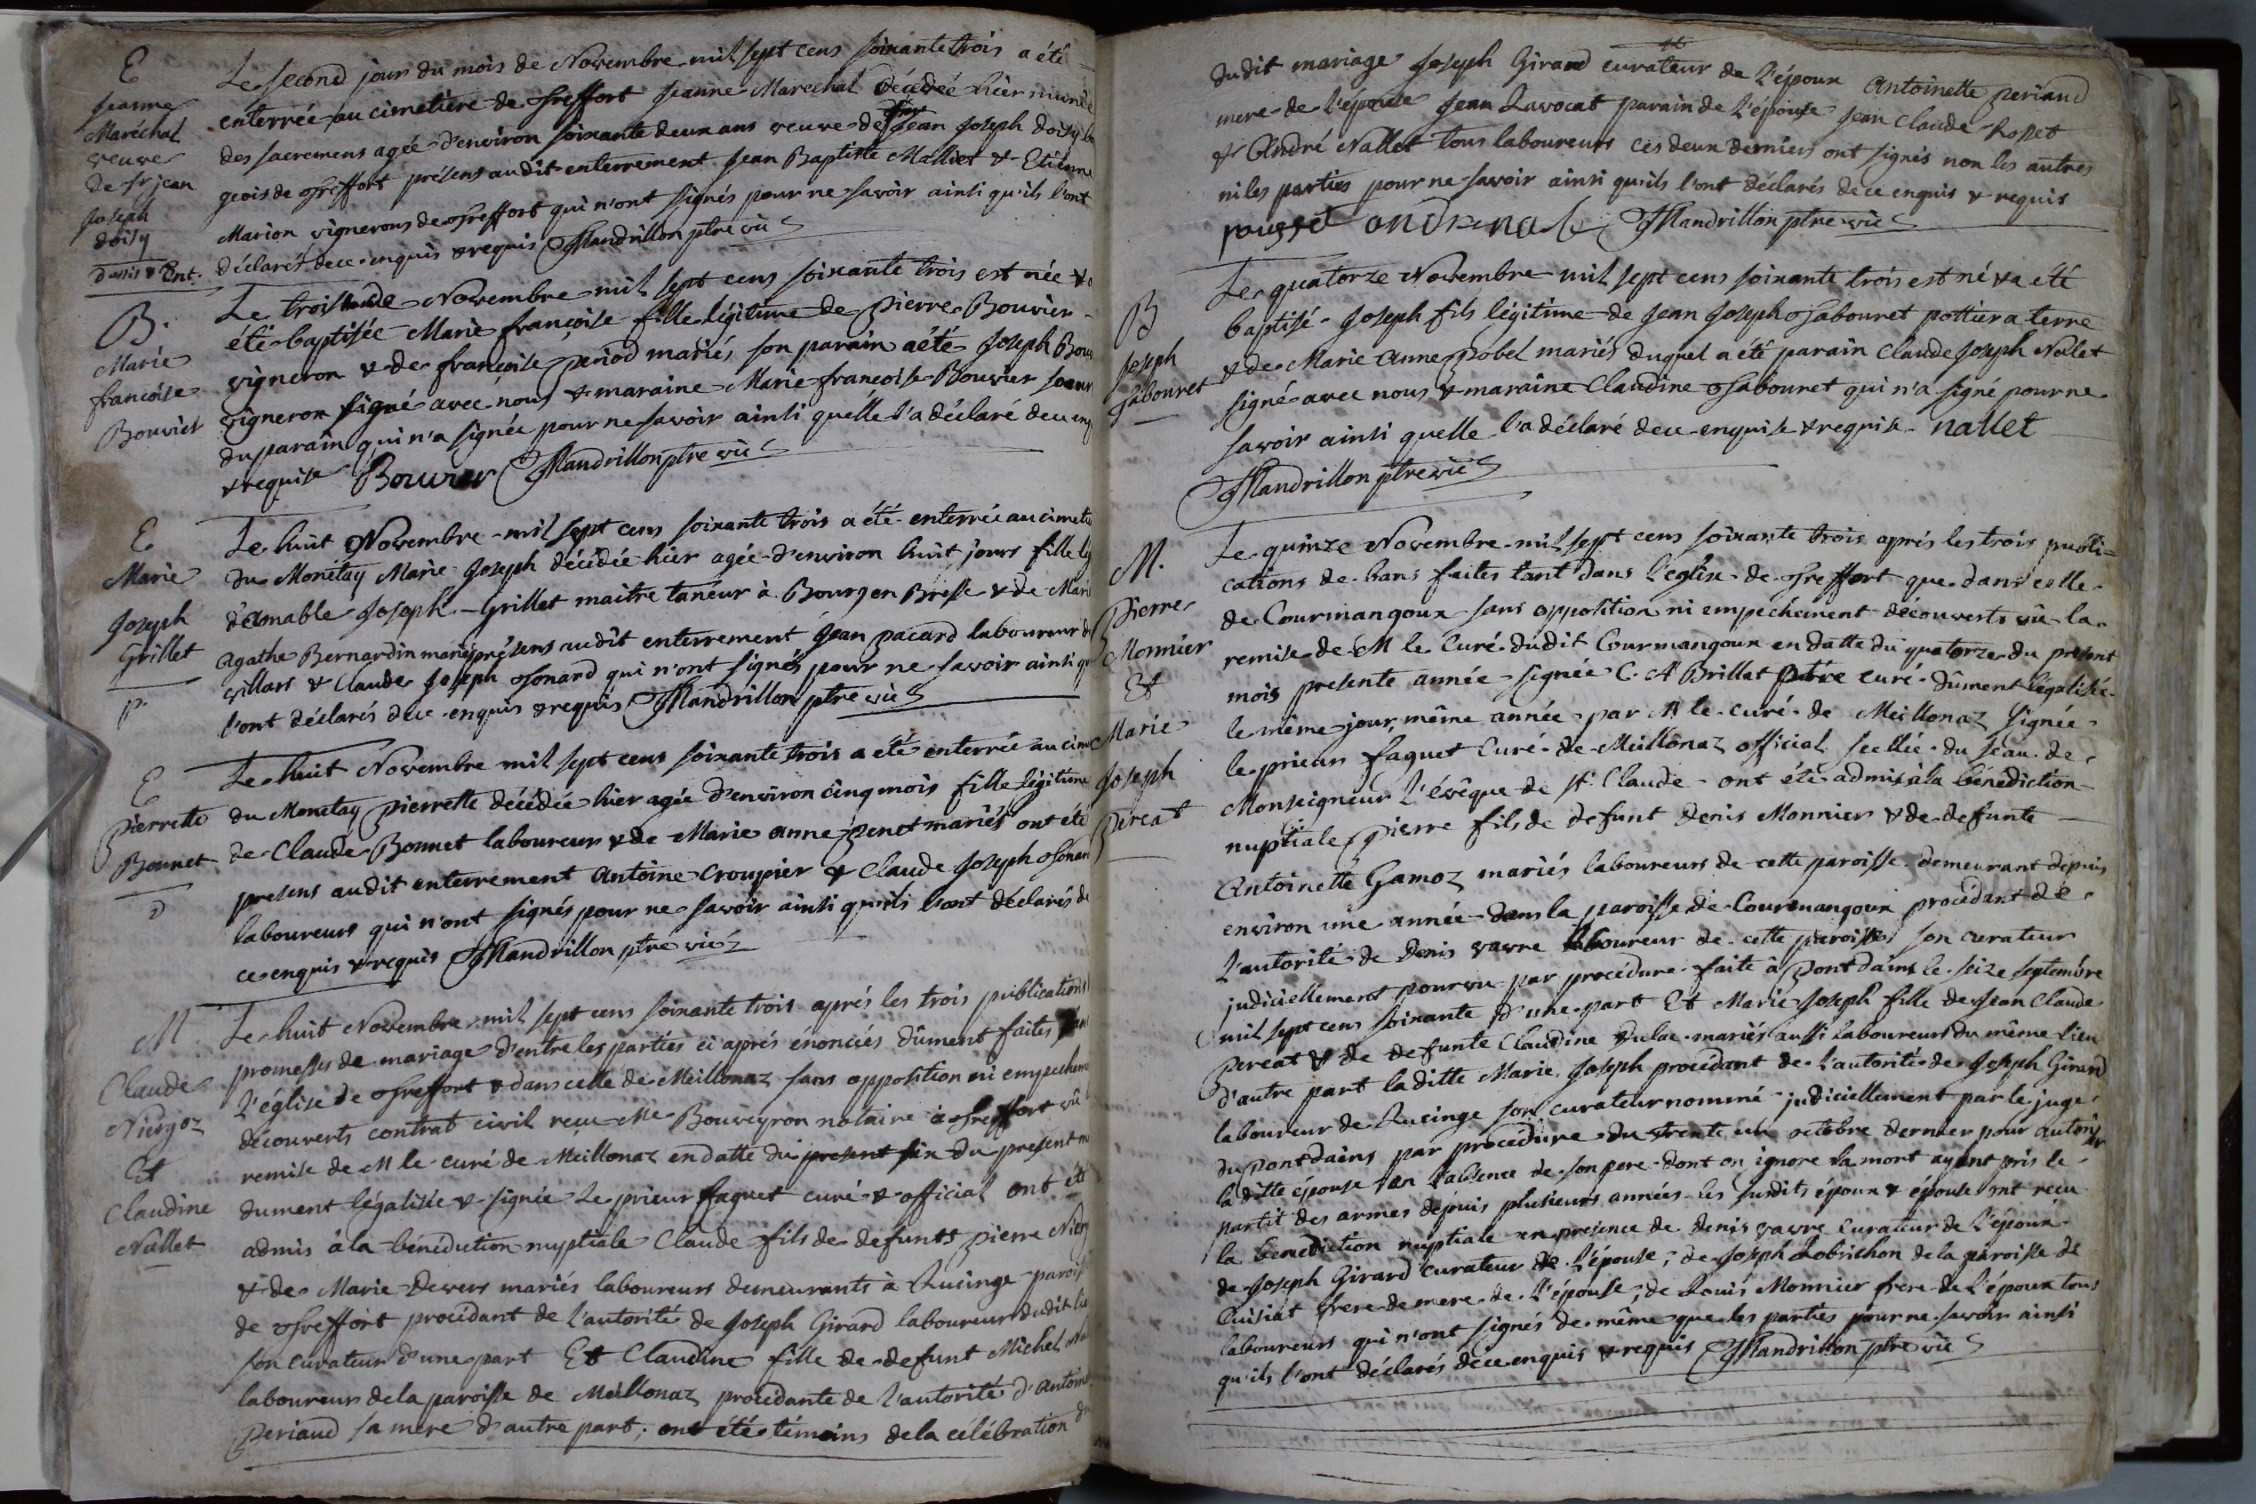 E
Jeanne
Maréchal
veuve
de Sr jean
Joseph
doisy
Le second jour du mois de Novembre mil sept cens soixante trois a été
enterrée au cimetiere de Treffort Jeanne Marechal décédée hier munie
des sacremens agée d'environ soixante deux ans veuve de Jean Joseph doisy
geois de Treffort présens audit enterrement Jean Baptiste Malliet & Etienne
Marion vignerons de Treffort qui n'ont signés pour ne savoir ainsi qu'ils l'ont
déclarés de ce enquis & requis Mandrillon ptre vic
B.
Marie
françoise
Bouvier
Le trois de Novembre mil sept cens soixante trois est née & a
été baptisée Marie françoise fille légitime de Pierre Bouvier
vigneron & de françoise Period mariés son parain a été Joseph Bouv
vigneron signé avec nous & maraine Marie francoise Bouvier soeur
du parain qui n'a signée pour ne savoir ainsi qu'elle l'a déclaré de ce enq
& requise Bouvier Mandrillon ptre vic
E
Marie
Joseph
Grillet
p.
Le huit Novembre mil sept cens soixante trois a été enterrée au cimeti
du Monetay Marie Joseph décédée hier agée d'environ huit jours fille lég
d'amable Joseph Grillet maitre taneur à Bourg en Bresse & de Marie
Agathe Bernardin mariés présens audit enterrement Jean pacard laboureur de
villars & Claude Joseph Gonard qui n'ont signés pour ne savoir ainsi qu
l'ont déclarés de ce enquis & requis Mandrillon ptre vic
E
Pierrette
Bonnet
D
Le huit Novembre mil sept cens soixante trois a été enterrée au cime
du Monetay Pierrette décédée hier agée d'environ cinq mois fille légitime
de Claude Bonnet laboureur & de Marie anne Genet mariés ont été
presens audit enterrement Antoine Croupier & Claude Joseph Gonar
laboureurs qui n'ont signés pour ne savoir ainsi qu'ils l'ont déclarés de
ce enquis & requis Mandrillon ptre vic
M
Claude
Niergoz
Et
Claudine
Nallet
Le huit Novembre mil sept cens soixante trois après les trois publications
promesses de mariage d'entre les parties ci après énoncées dûment faites
L'église de Treffort & dans celle de Meillonaz sans opposition ni empechem
découverts contrat civil recu Me Bouveyron notaire à Treffort vû
remise de M le curé de Meillonaz en datte du present six du present m
dument légalisée & signée Le prieur faguet curé & official ont été
admis à la bénédiction nuptiale Claude fils de defunts Pierre Nierg
& de Marie Devers mariés laboureurs demeurants à Lucinge parois
de Treffort procédant de l'autorité de Joseph Girard laboureur dudit lie
son curateur d'une part Et Claudine fille de defunt Michel
laboureur de la paroisse de Meillonaz procédante de l'autorité d'Antoin
Periaud sa mere d'autre part; ont été témoins de la célébration du
dudit mariage Joseph Girard curateur de l'époux Antoinette periaud
mere de l'épouse Jean Lavocat parain de l'épouse Jean Claude Rosset
& André Nallet tous laboureurs ces deux derniers ont signés non les autres
ni les parties pour ne savoir ainsi qu'ils l'ont déclarés de ce enquis & requis
Mandrillon ptre vic
B
Joseph
Gabouret
Le quatorze Novembre mil sept cens soixante trois est né & a été
baptisé Joseph fils légitime de Jean Joseph Gabouret pottier a terre
& de Marie Anne Pobel mariés duquel a été parain Claude Joseph Nalet
signé avec nous & maraine Claudine Gabouret qui n'a signé pour ne
savoir ainsi quelle l'a déclaré de ce enquise & requise nallet
Mandrillon ptre vic
M.
Pierre
Monnier
Et
Marie
Joseph
Pereat
Le quinze Novembre mil sept cens soixante trois après les trois publi=
cations de bans faites tant dans l'eglise de Treffort que dans celle
de Courmangoux sans opposition ni empechement découverts vû la
remise de M le Curé dudit Courmangoux en datte du quatorze du present
mois presente année signée C. A Brillat ptre curé dûment légalisée
le même jour, même année par M le curé de Meillonaz signée
le prieur faguet Curé de Meillonaz official scellée du sceau de
Monseigneur L'évêque de St Claude ont été admis à la bénédiction
nuptiale Pierre fils de defunt Denis Monnier & de defunte
Antoinette Gamoz mariés laboureurs de cette paroisse demeurant depuis
environ une année dans la paroisse de Courmangoux procédant de
L'autorité de Denis vavre laboureur de cette paroisse son curateur
judiciellement pourvu par procedure faite à Pont dains le seize septembre
mil sept cens soixante d'une part Et Marie Joseph fille de Jean Claude
Pereat & de defunte Claudine Dulac mariés aussi laboureurs du même lieu
d'autre part laditte Marie Joseph procédant de l'autorité de Joseph Girard
laboureur de Lucinge son curateur nommé judiciellement par le juge
du Pontdains par procédure du trente un octobre dernier pour autoriser
la ditte épouse en l'absence de son pere dont on ignore la mort ayant pris le
partit des armes depuis plusieurs années les susdits époux & épouse ont recu
la benediction nuptiale en presence de denis vavre curateur de l'époux
de Joseph Girard curateur de l'épouse; de Joseph Robrichon de la paroisse de
Cuisiat frere de mere de l'épouse; de Louis Monnier frere de l'époux tous
laboureurs qui n'ont signés de même que les parties pour ne savoir ainsi
qu'ils l'ont déclarés de ce enquis & requis Mandrillon ptre vic